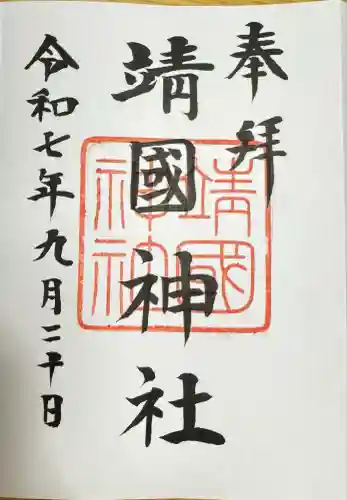 奉拝
靖國神社
令和七年九月二十日
靖國
神社